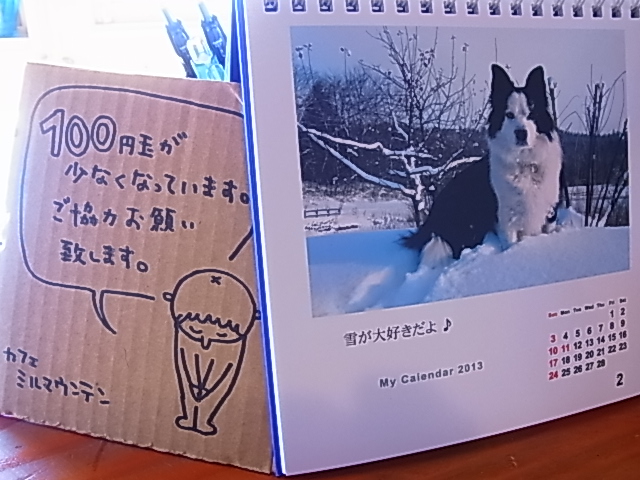 100円玉が
少なくなっています。
ご協力お願い
致します。
カフェ
ミルマウンテン
雪が大好きだよ♪
My Calendar 2013
Sun Mon Tue Wed Thu Fri Sat
1 2
3 4 5 6 7 8 9
10 11 12 13 14 15 16
17 18 19 20 21 22 23
24 25 26 27 28
2